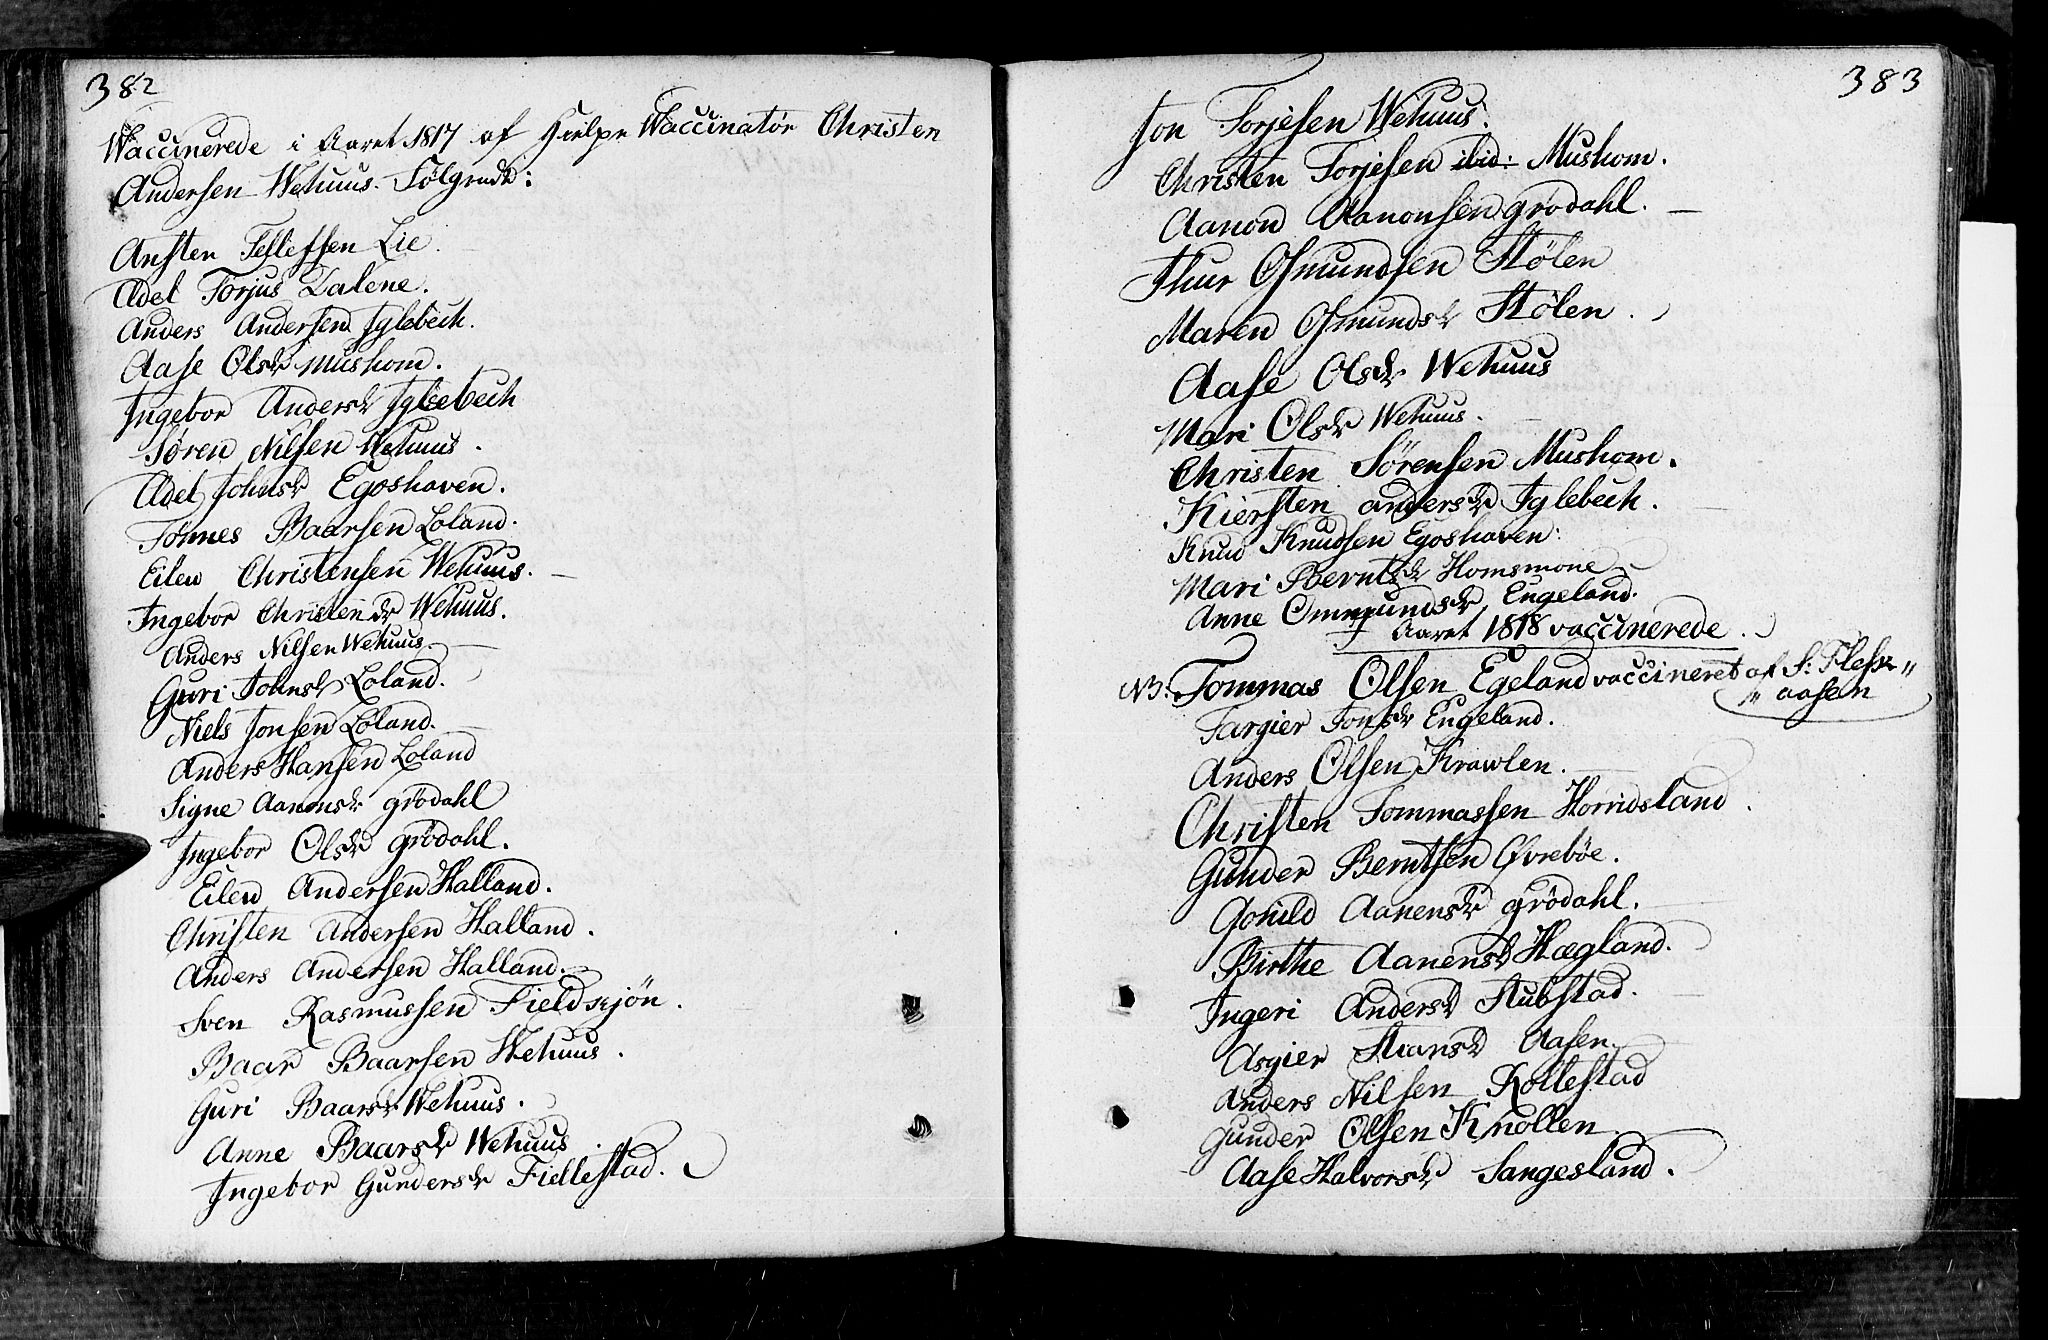 382
Waccinerede i Aaret 1817 af Hielpe Waccinatør Christen
Andersen Wehuus. Følgende:
Ansten Tellefsen Lie.
Adel Torjus Dalene.
Anders Andersen Iglebech.
Aase Olsdr Mushom.
Ingebor Andersdr Iglebech
Søren Nilsen Wehuus.
Adel Johnsdr Egoshaven.
Tønnes Baarsen Loland.
Eilev Christensen Wehuus.
Ingebor Christendr Wehuus.
Anders Nilsen Wehuus.
Guri Johnsdr Loland.
Niels Jonsen Loland.
Anders Hansen Loland
Signe Aanensdr Grødahl
Ingebor Olsdr Grødahl.
Eilev Andersen Halland.
Christen Andersen Halland.
Anders Andersen Halland.
Sven Rasmussen Fieldskjøn.
Baar Baarsen Wehuus.
Guri Baarsdr Wehuus.
Anne Baarsdr Wehuus.
Ingebor Gundersdr Fiellestad.
383
Jon Torjesen Wehuus.
Christen Torjesen ibid: Mushom.
Aanon Aanonsen Grødahl.
Thur Osmundsen Stølen
Maren Osmundsdr Stølen.
Aase Olsdr Wehuus
Mari Olsdr Wehuus.
Christen Sørensen Mushom.
Kiersten Andersdr Iglebech.
Knud Knudsen Egoshaven:
Mari Berntsdr Homsmone
Anne Ommundsdr Engeland.
I Aaret 1818 vaccinerede.
NB: Tommas Olsen Egeland vaccineret af S: Flesk„
„aasen
Targier Jonsdr Engeland.
Anders Olsen Krawlen.
Christen Tommassen Horridsland.
Gunder Berntsen Øvrebøe.
Gohild Aanensdr Grødahl.
Birthe Aanensdr Hægland.
Ingeri Andersdr Stubstad.
Asgier Aasen.
Anders Nilsen Rollestad
Gunder Olsen Knollen.
Aase Halvorsdr Sangesland.